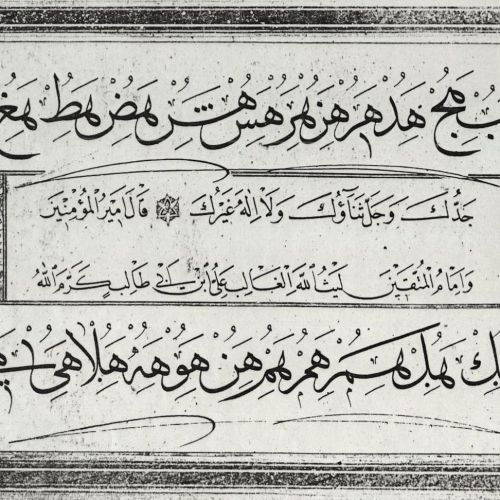 هج هد هر هز هر هس هش هض هط
جَدُّكَ وَجَلَّ ثَنَاؤُكَ وَلَا اِلٰهَ غَيْرُكَ قَالَ اَمِيرُ الْمُؤْمِنِينَ
وَاِمَامُ الْمُتَّقِينَ لَيْثُ اللهِ الْغَالِبِ عَلِيُّ ابْنُ اَبِي طَالِبٍ كَرَّمَ اللهُ
هل هم هم هم هن هو هه هلا هى